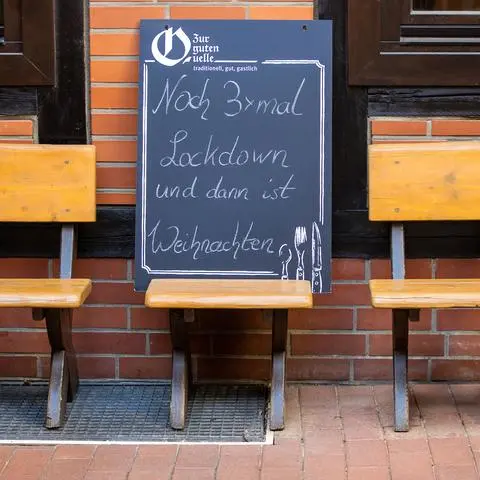 Zur
guten
Quelle
traditionell, gut, gastlich
Noch 3×mal
Lockdown
und dann ist
Weihnachten